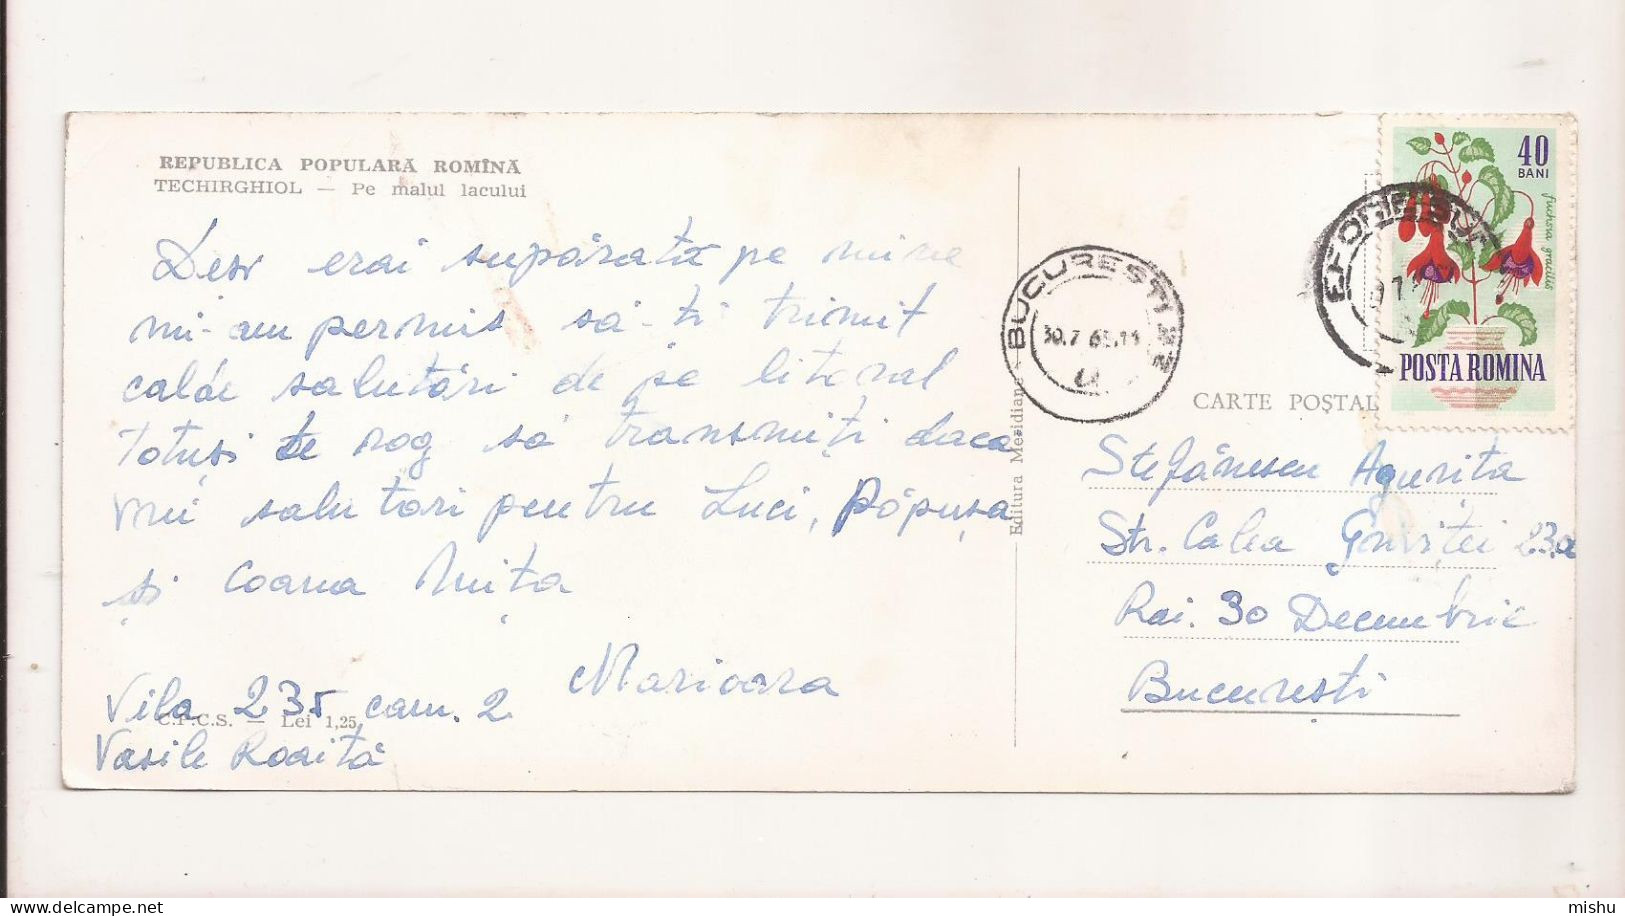 REPUBLICA POPULARĂ ROMÎNĂ
TECHIRGHIOL — Pe malul lacului
Desi erai supărată pe mine
mi-am permis să-ți trimit
calde salutări de pe litoral
Totuși te rog să transmiți daca
vrei salutari pentru Luci, Păpușa
și Coana Mița
Marioara
Vila 235 cam. 2
C.P.C.S. — Lei 1,25
Vasile Roaită
Editura Meridiane
BUCURESTI
30.7
EFORIE SUD
40
BANI
fuchsia gracilis
POSTA ROMINA
CARTE POȘTAL
Stefănescu Agurita
Str. Calea Griviței 23.a
Rai. 30 Decembrie
București
mishu